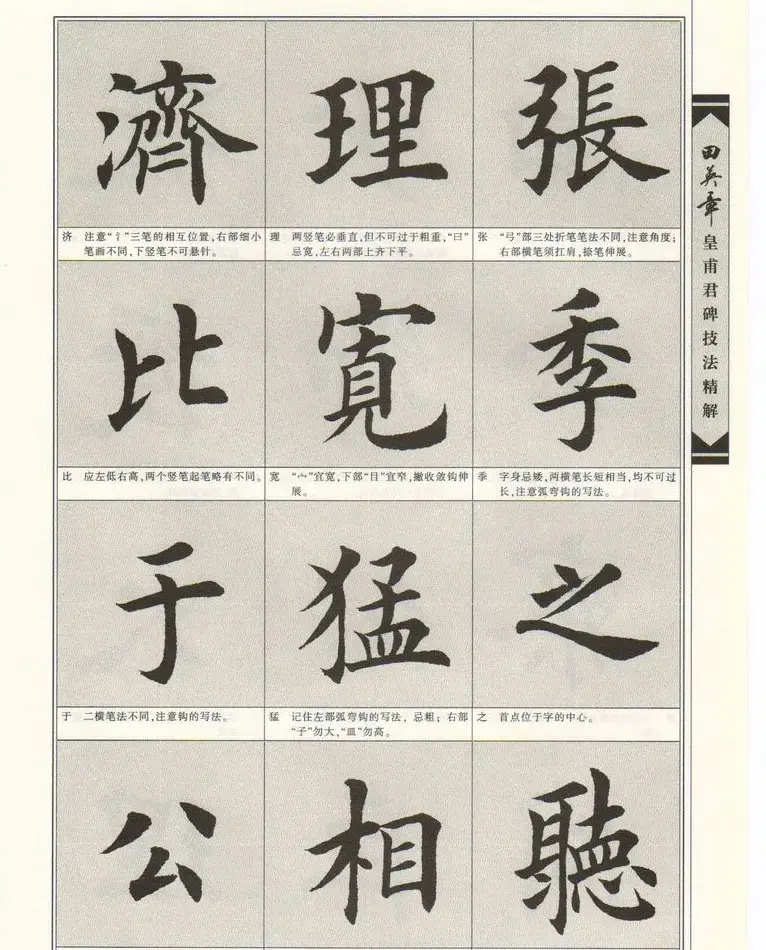 田英章皇甫君碑技法精解
張
张 “弓”部三处折笔笔法不同,注意角度;
右部横笔须扛肩,捺笔伸展。
季
季 字身忌矮,两横笔长短相当,均不可过
长,注意弧弯钩的写法。
之
之 首点位于字的中心。
聽
理
理 两竖笔必垂直,但不可过于粗重,“曰”
忌宽,左右两部上齐下平。
寬
宽 “宀”宜宽,下部“目”宜窄,撇收敛钩伸
展。
猛
猛 记住左部弧弯钩的写法,忌粗;右部
“子”勿大,“皿”勿高。
相
濟
济 注意“氵”三笔的相互位置,右部细小
笔画不同,下竖笔不可悬针。
比
比 应左低右高,两个竖笔起笔略有不同。
于
于 二横笔法不同,注意钩的写法。
公